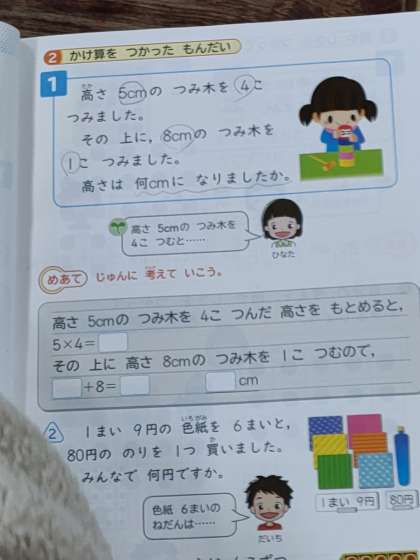 2 かけ算を つかった もんだい
1
高さ 5cmの つみ木を 4こ
つみました。
その 上に, 8cmの つみ木を
1こ つみました。
高さは 何cmに なりましたか。
高さ 5cmの つみ木を
4こ つむと……
ひなた
めあて じゅんに 考えて いこう。
高さ 5cmの つみ木を 4こ つんだ 高さを もとめると,
5×4=
その 上に 高さ 8cmの つみ木を 1こ つむので,
+8= cm
2 1まい 9円の 色紙を 6まいと,
80円の のりを 1つ 買いました。
みんなで 何円ですか。
1まい 9円 80円
色紙 6まいの
ねだんは……
だいち